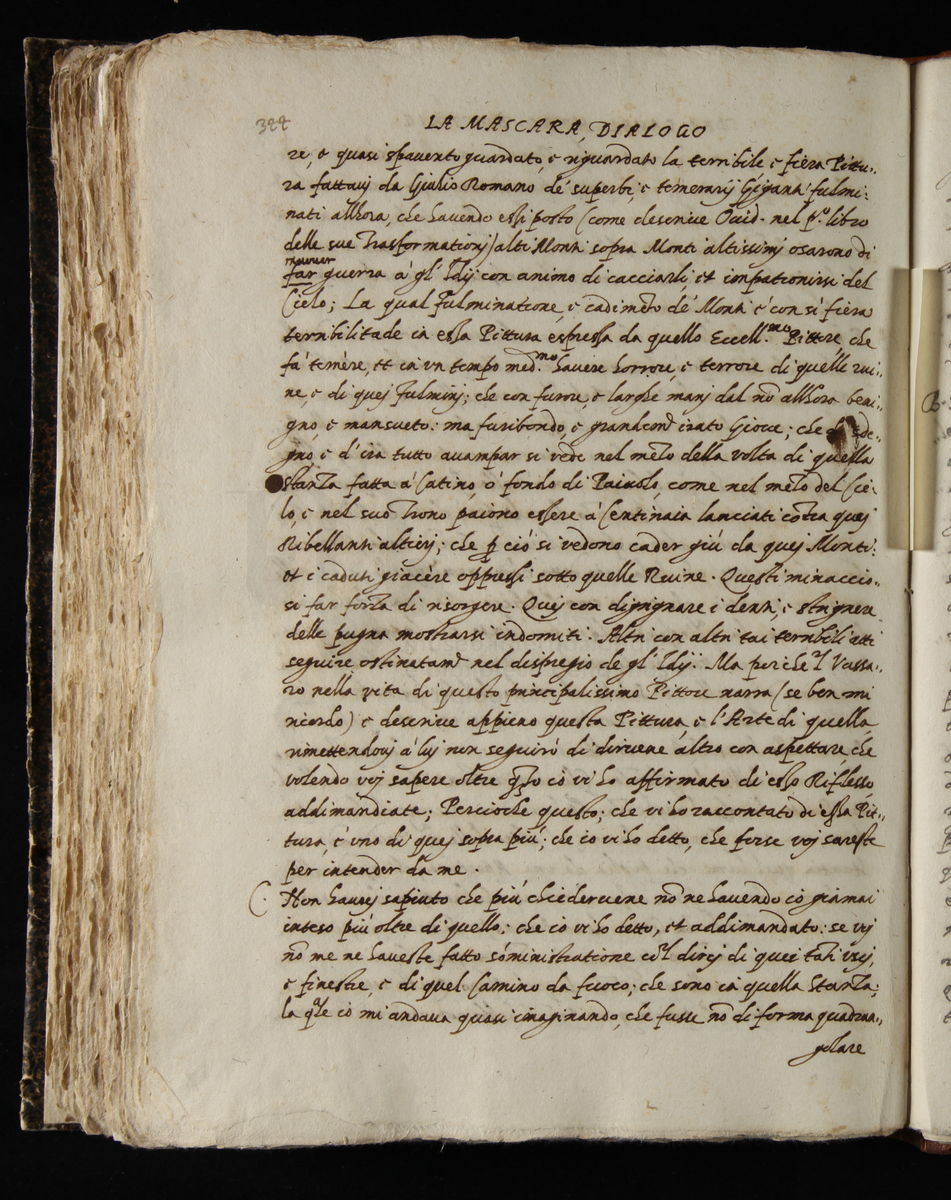 344
LA MASCARA, DIALOGO
re, e quasi spavento guardato, e riguardato la terribile e fiera Pittu:,
ra fattavj da Giulio Romano de' superbi, e temerarij Giganti fulmi:
nati allhora, che havendo essi posto (come descrive Ouid. nel p.º libro
delle sue Trasformationj) alti Monti sopra Monti altissimj osarono di
far guerra à gl' Idij con animo di cacciarli, et impatronirsi del
Cielo; La qual fulminatione, e cadimẽto de' Monti è con sì fiera
terribilitade in essa Pittura espressa da quello Eccell.mo Pittore, che
fà temère, et in un tempo med.mo havere horrore, e terrore di quelle rui:,
ne, e di quej fulminj; che con furore, e larghe manj dal nõ allhora beni:,
gno, e mansueto: ma furibondo, e grandemẽ irato Giove; che di sde:,
gno, e d' ira tutto avampar si vede nel mezo della volta di quella
stanza fatta à Catino, ò fondo di Paiuolo, come nel mezo del Cie:
lo, e nel suo Trono paiono essere à Centinaia lanciati cõtra quej
Ribellanti altierj; che p ciò si vedono cader giù da quej Monti:
et i caduti giacère oppressi sotto quelle Ruine. Questi minaccio:,
si far forza di risorgere. Quej con digrignare i denti, e strignere
delle pugna mostrarsi indomiti. Altri con altri tai terribili atti
seguire ostinatamẽ nel dispregio de gl' Idij. Ma perche 'l Vassa:,
ro nella vita di questo principalissimo Pittore narra (se ben mi
ricordo) e descrive appieno questa Pittura, e l' Arte di quella,
rimettendovj à luj non seguirò di dirvene altro con aspettare, che
volendo voj sapere oltre qto io vi ho affirmato di esso Riflesso,
addimandiate; Percioche questo; che vi ho raccontato di essa Pit:,
tura, è uno di quej sopra più; che io vi ho detto, che forse voj sareste
per intender da me.
C. Non haurej saputo che più chiedervene nõ ne havendo io giamai
inteso più oltre di quello; che io vi ho detto, et addimandato: se voj
nõ me ne haveste fatto sõministratione co 'l direj di quei tãti usij,
e finestre, e di quel Camino da fuoco; che sono in quella Stanza;
la qle io mi andava quasi imaginando, che fusse nõ di forma quadran:,
golare